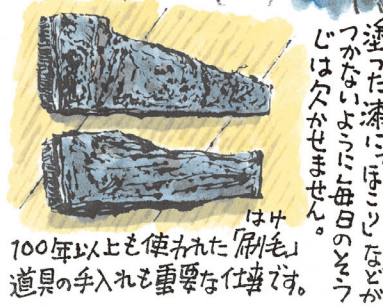 塗った漆に「ほこり」などが
つかないように毎日のそう
じは欠かせません。
はけ
100年以上も使われた「刷毛」
道具の手入れも重要な仕事です。